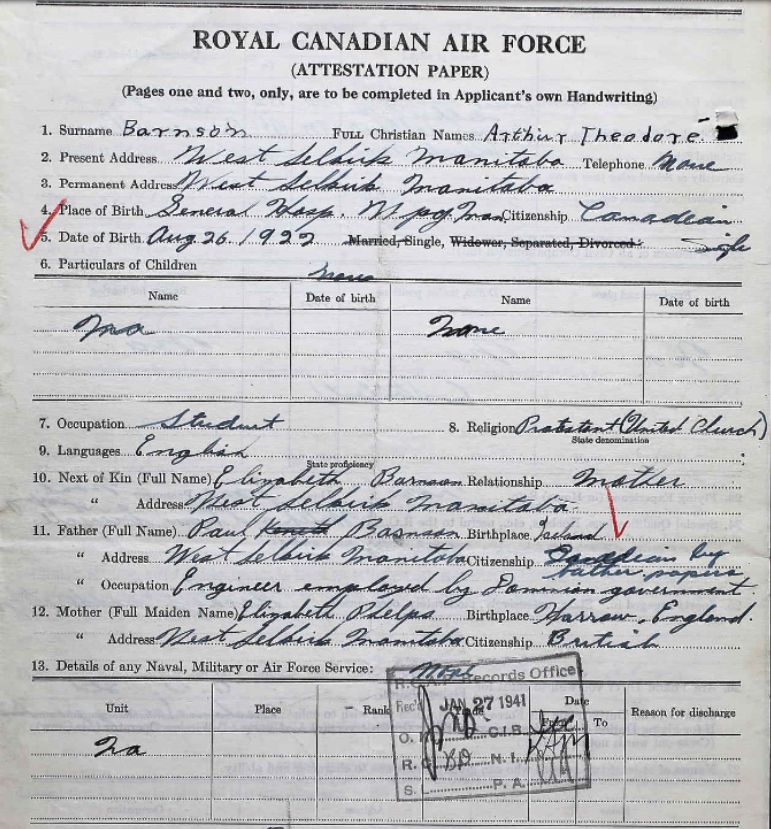 ROYAL CANADIAN AIR FORCE
(ATTESTATION PAPER)
(Pages one and two, only, are to be completed in Applicant's own Handwriting)
1. Surname Barnson FULL Christian Names Arthur Theodore
2. Present Address West Selkirk Manitoba Telephone None
3. Permanent Address West Selkirk Manitoba
4. Place of Birth General Hosp. Wpg Man Citizenship Canadian
5. Date of Birth Aug 26. 1922 Married, Single, Widower, Separated, Divorced: Single
6. Particulars of Children None
Name Date of birth Name Date of birth
No None
7. Occupation Student 8. Religion Protestant (United Church)
State denomination
9. Languages English
State proficiency
10. Next of Kin (Full Name) Elizabeth Barnson Relationship Mother
" Address West Selkirk Manitoba
11. Father (Full Name) Paul Barnson Birthplace Iceland
" Address West Selkirk Manitoba Citizenship Canadian by
father papers
" Occupation Engineer employed by Dominion government.
12. Mother (Full Maiden Name) Elizabeth Phelps Birthplace Harrow, England.
" Address West Selkirk Manitoba Citizenship British
13. Details of any Naval, Military or Air Force Service:
Records Office
Unit Place Rank Rec'd JAN 27 1941 Date Reason for discharge
From To
O. C.I.B.
No
R. C. N. I.
S. P. A.